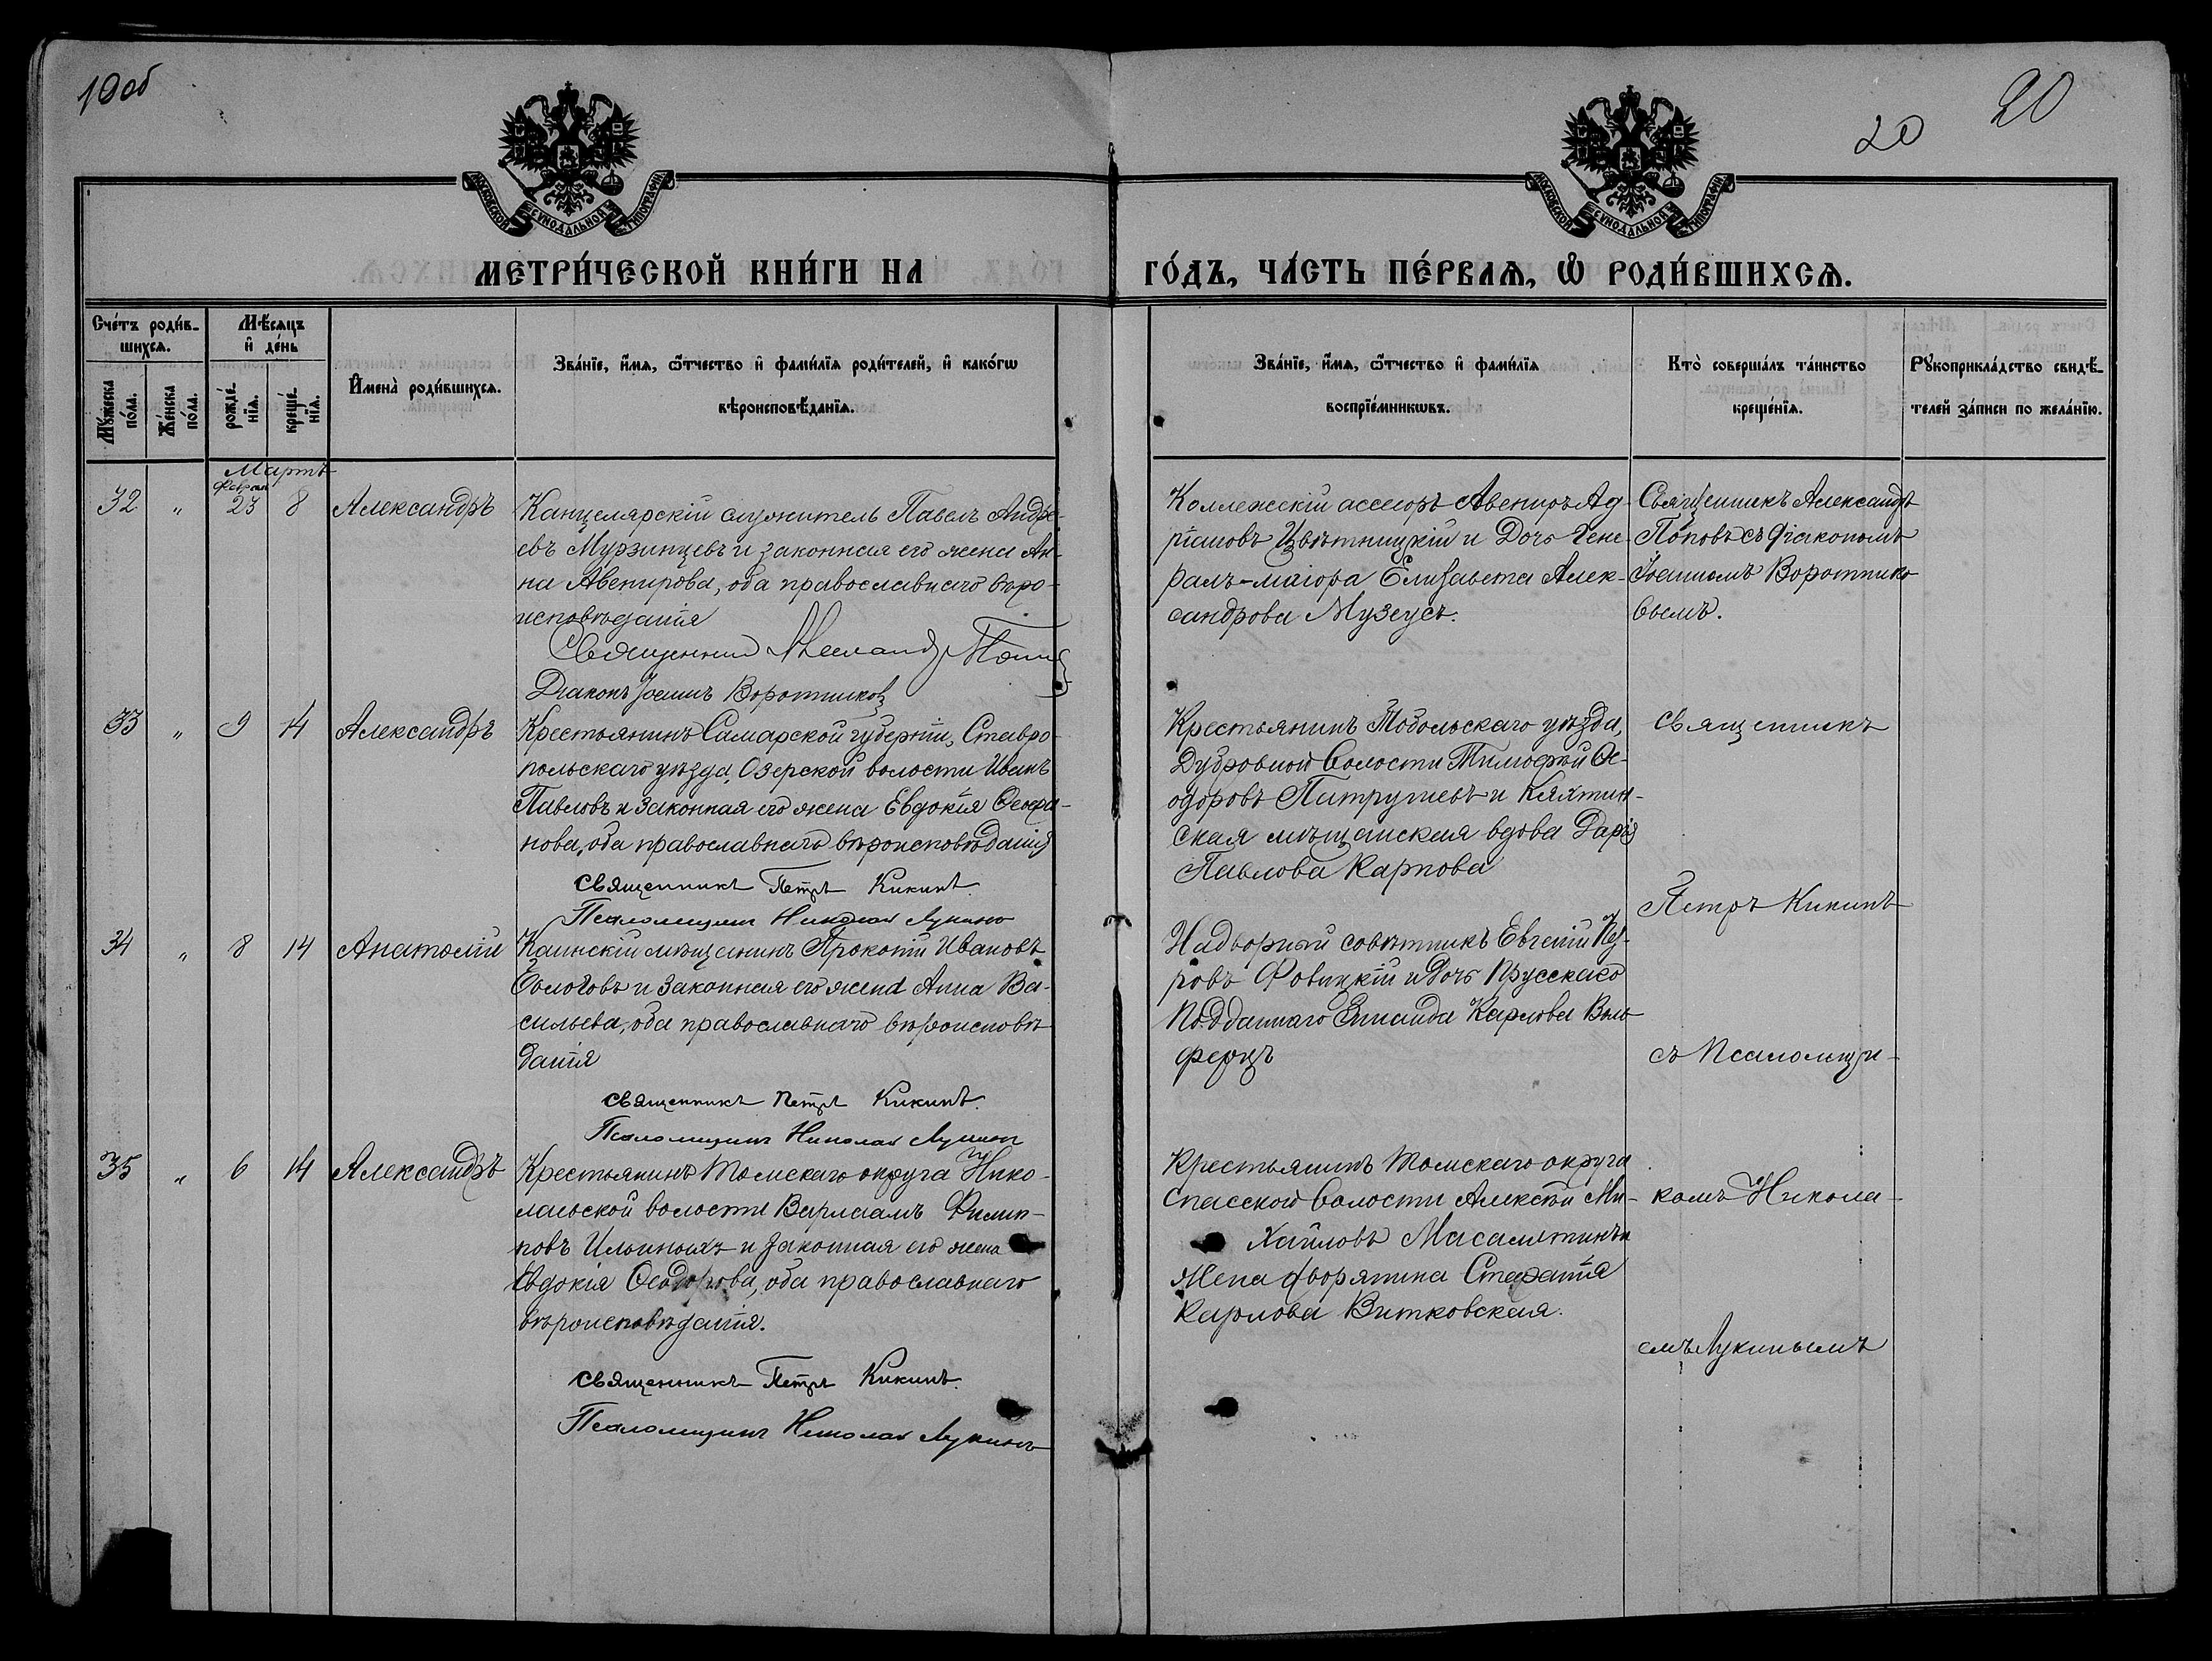 19об
20
20
МОСКОВСКОЙ СѴНОДАЛЬНОЙ ТИПОГРАФІИ
МОСКОВСКОЙ СѴНОДАЛЬНОЙ ТИПОГРАФІИ
МЕТРИ́ЧЕСКОЙ КНИ́ГИ НА ГО́ДЪ, ЧА́СТЬ ПЕ́РВАѦ, Ѡ҆ РОДИ́ВШИХСѦ.
Сче́тъ роди́в-
шихсѧ.
Мѣ́сѧцъ
и҆ де́нь
Мꙋ́жеска
по́ла.
Же́нска
по́ла.
рожде́-
нїѧ.
креще́-
нїѧ.
И҆мена̀ роди́вшихсѧ.
Зва́нїе, и҆́мѧ, ѻ҆́тчество и҆ фами́лїѧ роди́телей, и҆ како́гѡ
вѣроисповѣ́данїѧ.
Зва́нїе, и҆́мѧ, ѻ҆́тчество и҆ фами́лїѧ
воспрїе́мникѡвъ.
Кто̀ соверша́лъ та́инство
креще́нїѧ.
Рꙋкоприкла́дство свидѣ́-
телей за́писи по жела́нїю.
Мартъ
Феврал
32 " 23 8 Александръ
Канцелярскій служитель Павелъ Андре-
евъ Мурзинцевъ и законная его жена Ан-
на Авенирова, оба православнаго веро-
исповѣданія
Священник Александр Попов
Діаконъ Іоаннъ Воротников
Коллежскій ассесоръ Авениръ Ад-
ріановъ Цвѣтницкій и Дочь Гене-
ралъ-маіора Елизавета Алек-
сандрова Музеусъ.
Священникъ Александръ
Поповъ съ діакономъ
Іоанномъ Воротнико-
вымъ.
33 " 9 14 Александръ
Крестьянинъ Самарской губерніи, Ставро-
польскаго уѣзда, Озерской волости Иванъ
Павловъ и законная его жена Евдокія Оеофа-
нова, оба православнаго вѣроисповѣданія
священникъ Петръ Кикинъ
Псаломщикъ Николай Лукинъ
Крестьянинъ Тобольскаго уѣзда,
Дубровной волости Тимофей Ѳе-
одоровъ Питрушевъ и Кяхтин-
ская мѣщанская вдова Дарія
Павлова Карпова
священникъ
Петръ Кикинъ
34 " 8 14 Анатолій
Каинскій мѣщанинъ Прокопій Ивановъ
и законная его жена Анна Ва-
сильева, оба православнаго вѣроисповѣ-
данія
священникъ Петръ Кикинъ.
Псаломщикъ Николай Лукинъ
Надворный совѣтникъ Евгеній
ровъ и дочь Прусскаго
Подданнаго Карлова Воль-
ферцъ
съ Псаломщи-
35 " 6 14 Александръ
Крестьянинъ Томскаго округа Нико-
лаевской волости Варлаамъ Филип-
повъ Ильиныхъ и законная его жена
Евдокія Ѳеодорова, оба православнаго
вѣроисповѣданія.
священникъ Петръ Кикинъ.
Псаломщикъ Николай Лукинъ
Крестьянинъ Томскаго округа
Спасской волости Алексѣй Ми-
хайловъ Масалытинъ и
Жена дворянина Стефанія
Карлова Витковская.
комъ Никола-
емъ Лукинымъ